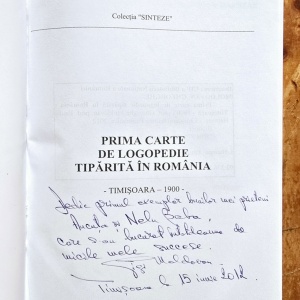 Colecția "SINTEZE"
PRIMA CARTE
DE LOGOPEDIE
TIPĂRITĂ ÎN ROMÂNIA
- TIMIȘOARA – 1900 -
Dedic primul exemplar bunilor mei prieteni
Ancuța și Nelu Baba,
care s-au bucurat întotdeauna de
micile mele succese.
Moldovan
Timișoara 15 iunie 2012